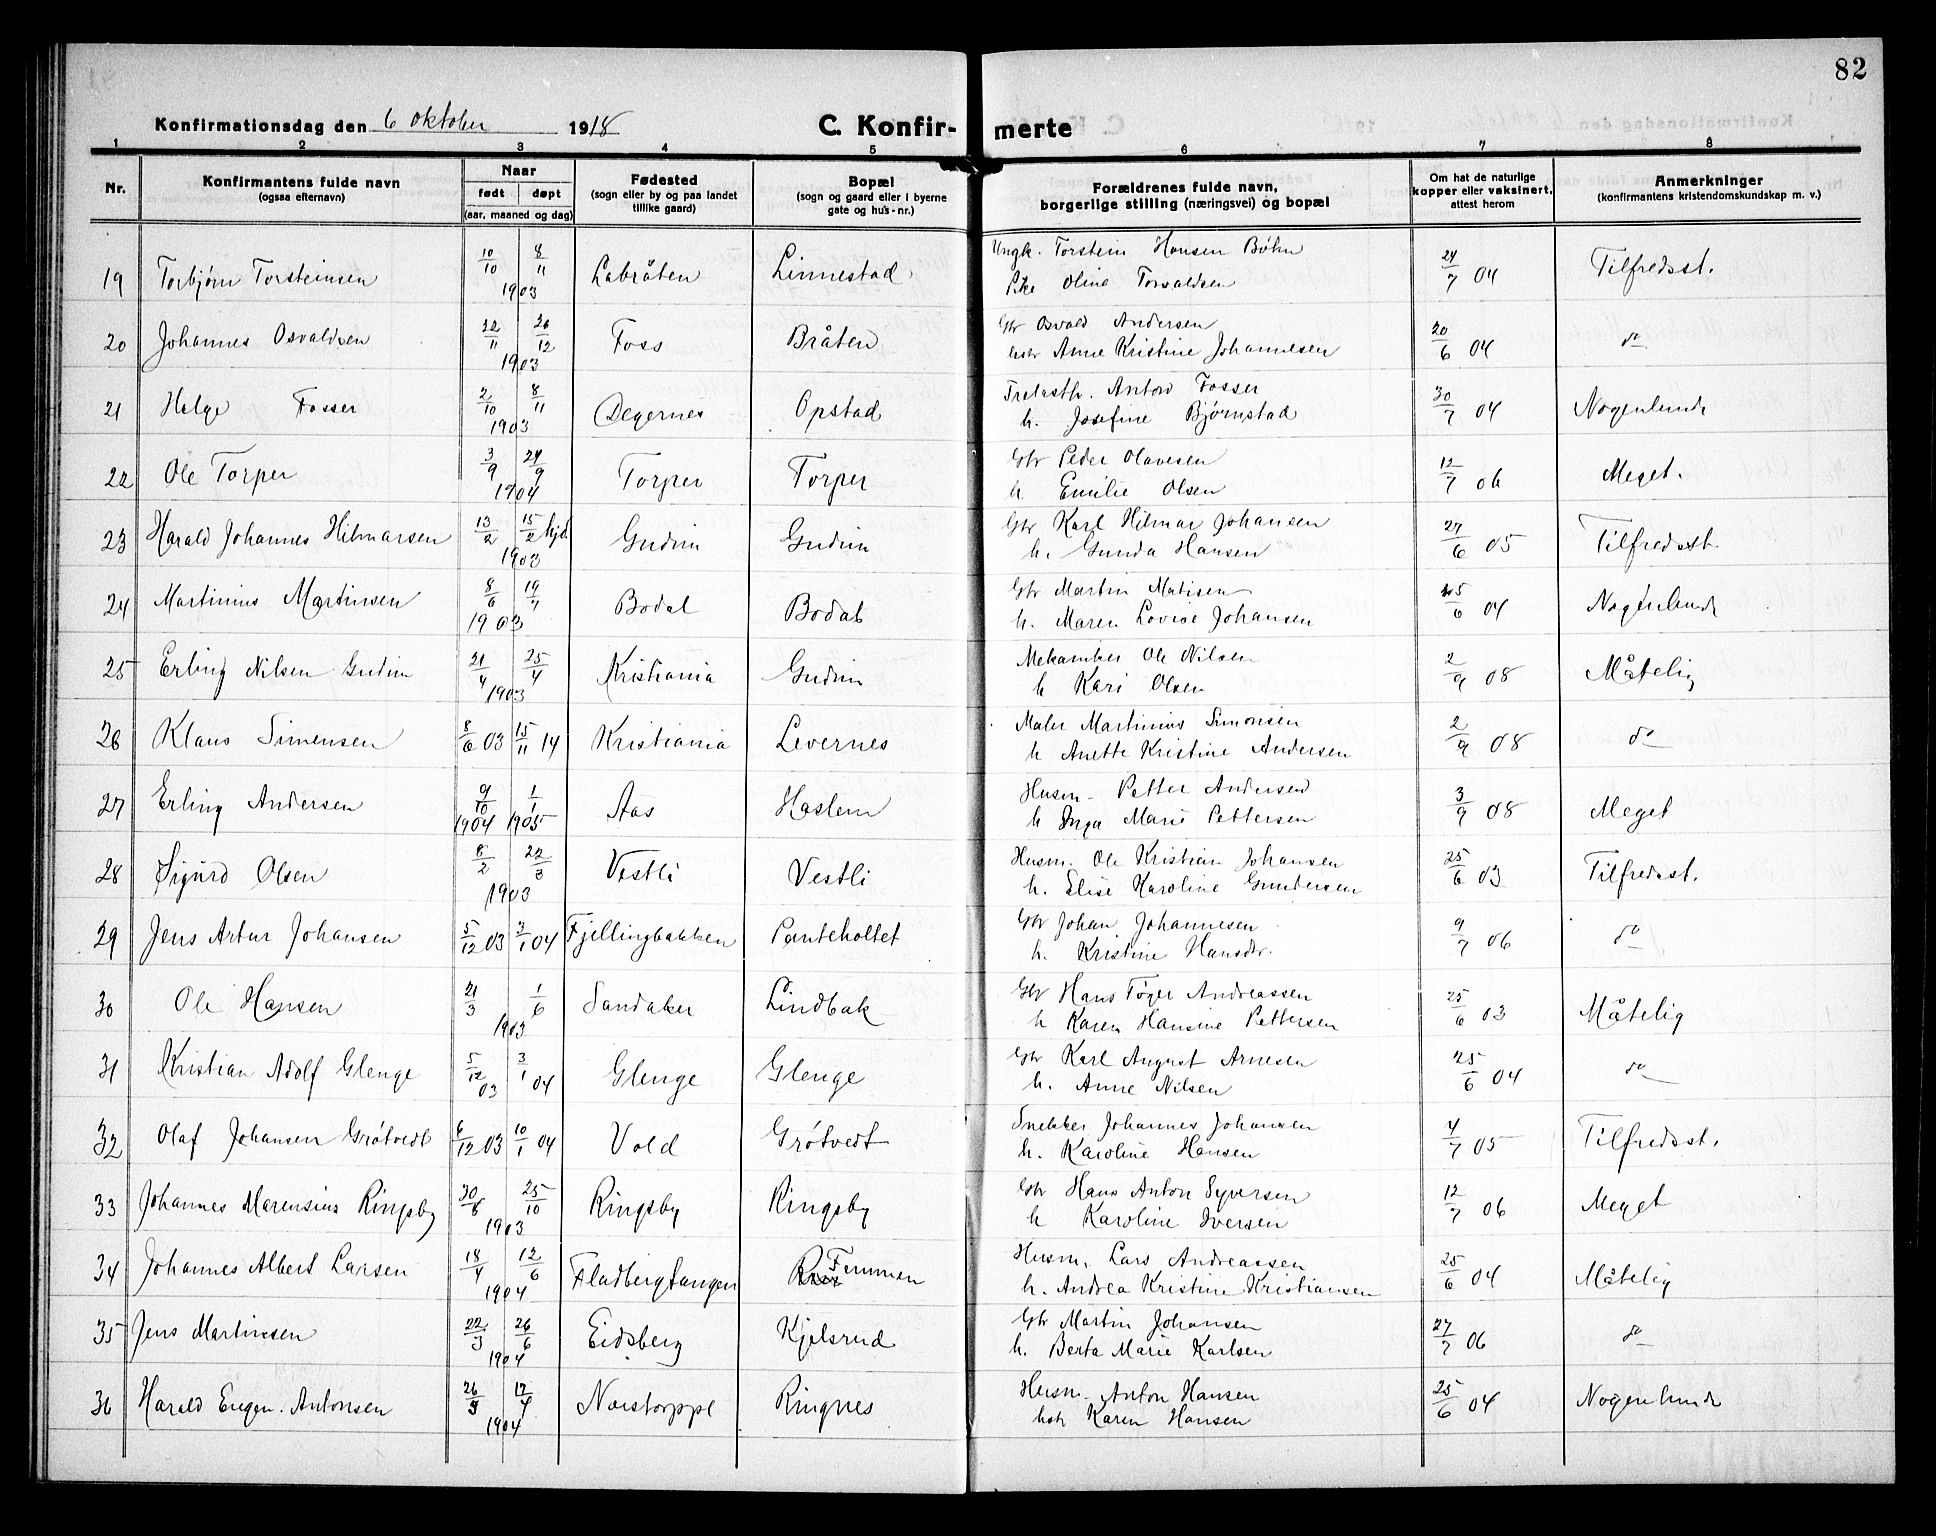 82
Konfirmationsdag den 6 oktober 1918
C. Konfir- merte
1 2 3 4 5 6 7 8
Nr.
Konfirmantens fulde navn
(ogsaa efternavn)
Naar
født døpt
(aar, maaned og dag)
Fødested
(sogn eller by og paa landet
tillike gaard)
Bopæl
(sogn og gaard eller i byerne
gate og hus-nr.)
Forældrenes fulde navn,
borgerlige stilling (næringsvei) og bopæl
Om hat de naturlige
kopper eller vaksinert,
attest herom
Anmerkninger
(konfirmantens kristendomskundskap m. v.)
19 Torbjørn Torsteinsen 10/10 8/11 1903 Labråten Linnestad Ungk. Torstein Hansen Bøhn
Pike Oline Torvaldsen 24/7 04 Tilfredsst.
20 Johannes Osvaldsen 22/11 26/12 1903 Foss Bråten Gbr Osvald Andersen
hstr Anne Kristine Johannesen 20/6 04 do
21 Helge Fosser 2/10 8/11 1903 Degernes Opstad Anton Fosser
h. Josefine Bjørnstad 30/7 04 Nogenlunde
22 Ole Torper 3/9 24/9 1904 Torper Torper Gbr Peder Olavesen
h Emilie Olsen 12/7 06 Meget.
23 Harald Johannes Hilmarsen 13/2 15/2 hjd. 1903 Gudim Gudim Gbr Karl Hilmar Johansen
h. Gunda Hansen 27/6 05 Tilfredsst.
24 Martinius Martinsen 8/6 19/7 1903 Bodal Bodal Gbr Martin Matisen
h. Maren Lovise Johansen 25/6 04 Nogenlunde
25 Erling Nilsen Gudim 21/4 25/4 1903 Kristiania Gudim Mekaniker Ole Nilsen
h Kari Olsen 2/9 08 Måtelig
26 Klaus Simensen 8/6 03 15/11 14 Kristiania Levernes Maler Martinius Simonsen
h Anette Kristine Andersen 2/9 08 do
27 Erling Andersen 9/10 1904 1/1 1905 Aas Haslem Husm. Petter Andersen
h Inga Marie Pettersen 3/9 08 Meget
28 Sigurd Olsen 8/2 22/3 1903 Vestli Vestli Husm. Ole Kristian Johansen
h. Elise Karoline Gundersen 25/6 03 Tilfredsst.
29 Jens Artur Johansen 5/12 03 3/1 04 Fjellingbakken Panteholtet Gbr Johan Johannesen
h. Kristine Hansdr. 9/7 06 do
30 Ole Hansen 21/3 1/6 1903 Sandaker Lindbak Gbr Hans Tøger Andreassen
h Karen Hansine Pettersen 25/6 03 Måtelig
31 Kristian Adolf Glenge 5/12 03 3/1 04 Glenge Glenge Gbr Karl August Arnesen
h. Anne Nilsen 25/6 04 do
32 Olaf Johansen Grøtvedt 6/12 03 10/1 04 Vold Grøtvedt Snekker Johannes Johansen
h. Karoline Hansen 4/7 05 Tilfredsst.
33 Johannes Marensius Ringsby 30/8 25/10 1903 Ringsby Ringsby Gbr Hans Anton Syversen
h Karoline Iversen 12/7 06 Meget
34 Johannes Albert Larsen 18/4 12/6 1904 Fladbergtangen Femman Husm. Lars Andreassen
h. Andrea Kristine Kristiansen 25/6 04 Måtelig
35 Jens Martinsen 22/3 26/6 1904 Eidsberg Kjelsrud Gbr Martin Johansen
h. Berta Marie Karlsen 27/7 06 do
36 Harald Eugen. Antonsen 26/3 17/4 1904 Norstorppl Ringnes Husm. Anton Hansen
hstr Karen Hansen 25/6 04 Nogenlunde